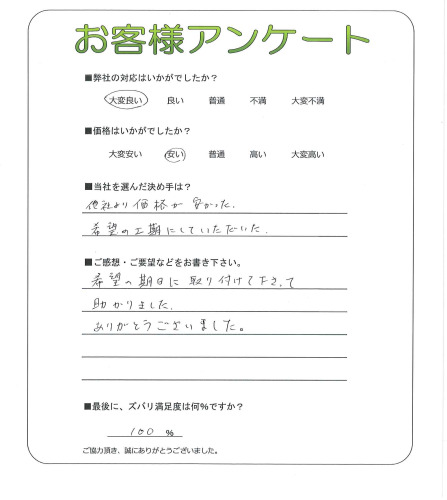 お客様アンケート
■弊社の対応はいかがでしたか？
大変良い 良い 普通 不満 大変不満
■価格はいかがでしたか？
大変安い 安い 普通 高い 大変高い
■当社を選んだ決め手は？
他社より価格が安かった.
希望の工期にしていただいた.
■ご感想・ご要望などをお書き下さい。
希望の期日に取り付けて下さって
助かりました.
ありがとうございました。
■最後に、ズバリ満足度は何%ですか？
100 %
ご協力頂き、誠にありがとうございました。